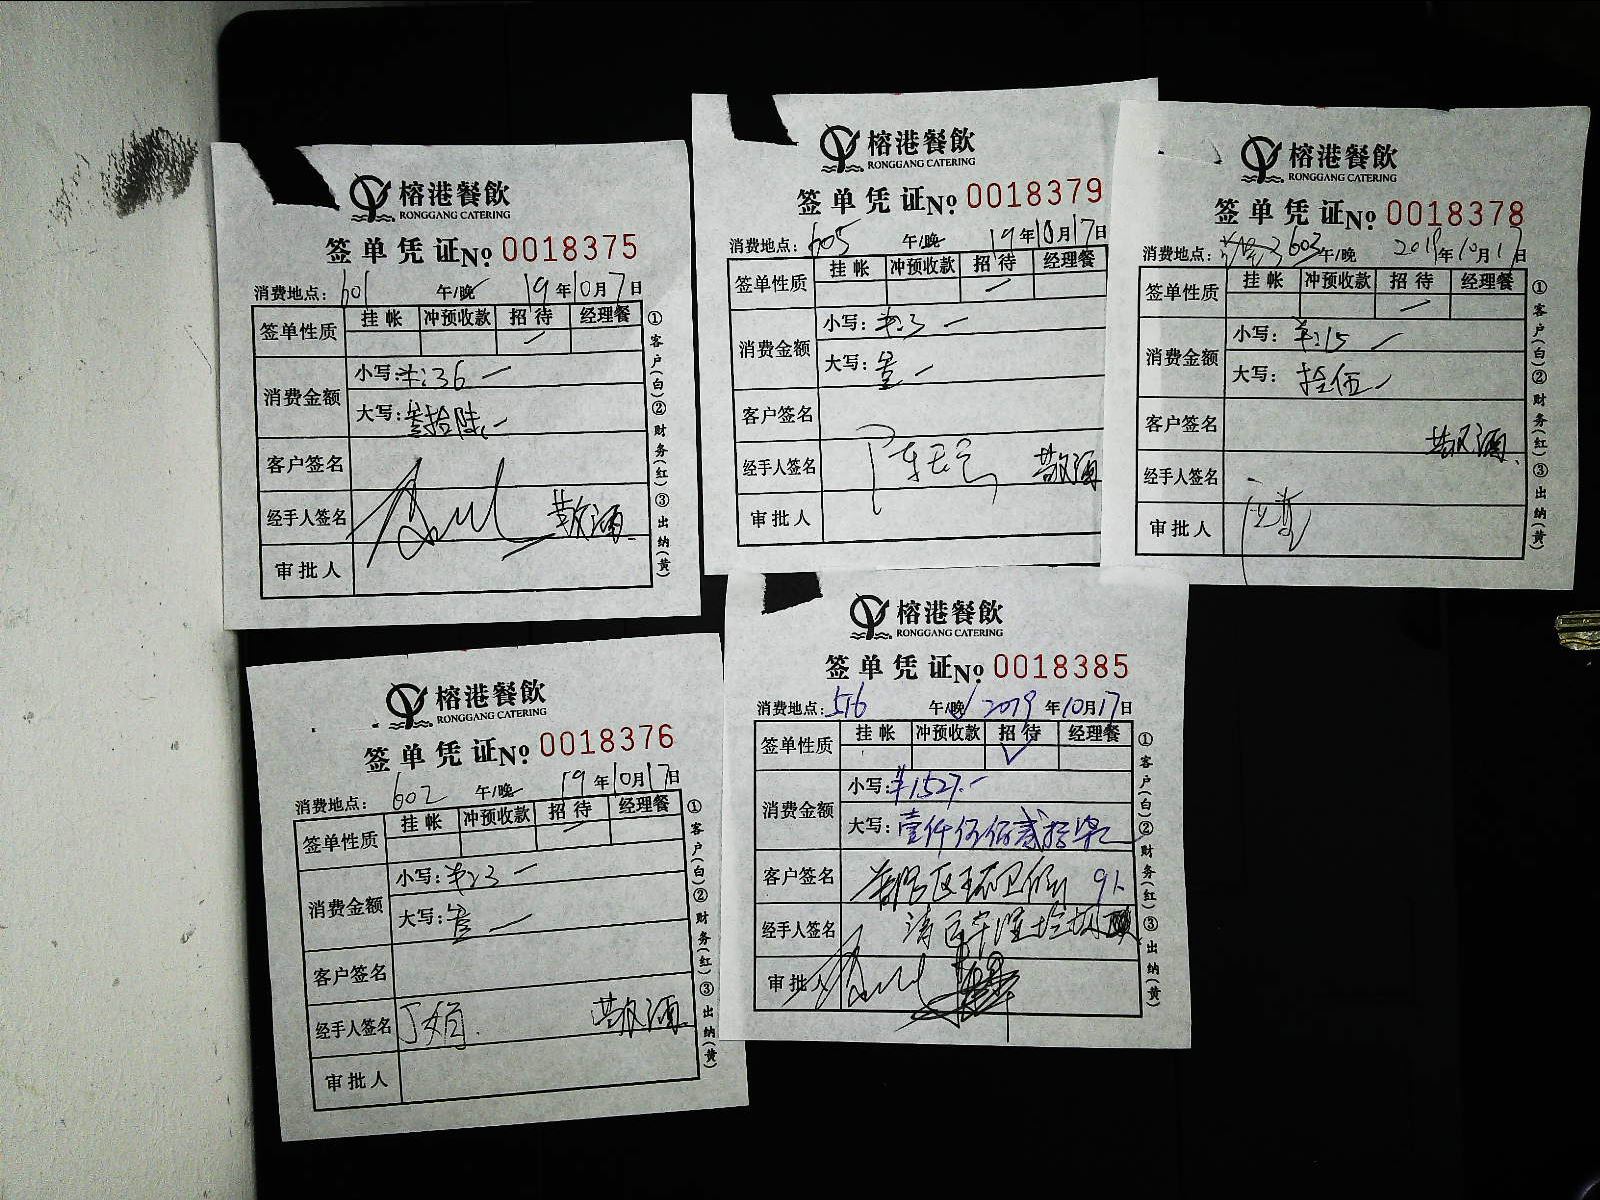 榕港餐飲
RONGGANG CATERING
签单凭证№ 0018375
消费地点: 601 午/晚 19年10月17日
签单性质 挂帐 冲预收款 招待 经理餐
消费金额
小写: ¥:36
大写: 叁拾陆
客户签名
经手人签名 敬酒
审批人
①客户(白)②财务(红)③出纳(黄)
榕港餐飲
RONGGANG CATERING
签单凭证№ 0018379
消费地点: 605 午/晚 19年10月17日
签单性质 挂帐 冲预收款 招待 经理餐
消费金额
小写:
大写:
客户签名
经手人签名 敬酒
审批人
榕港餐飲
RONGGANG CATERING
签单凭证№ 0018378
消费地点: 603 午/晚 2019年10月17日
签单性质 挂帐 冲预收款 招待 经理餐
消费金额
小写: ¥:15
大写: 拾伍
客户签名
敬酒
经手人签名
审批人
①客户(白)②财务(红)③出纳(黄)
榕港餐飲
RONGGANG CATERING
签单凭证№ 0018376
消费地点: 602 午/晚 19年10月17日
签单性质 挂帐 冲预收款 招待 经理餐
消费金额
小写:
大写:
客户签名
经手人签名 丁娟 敬酒
审批人
①客户(白)②财务(红)③出纳(黄)
榕港餐飲
RONGGANG CATERING
签单凭证№ 0018385
消费地点: 516 午/晚 2019年10月17日
签单性质 挂帐 冲预收款 招待 经理餐
消费金额
小写: ¥1527.
大写: 壹仟伍佰贰拾柒
客户签名
经手人签名
审批人
①客户(白)②财务(红)③出纳(黄)